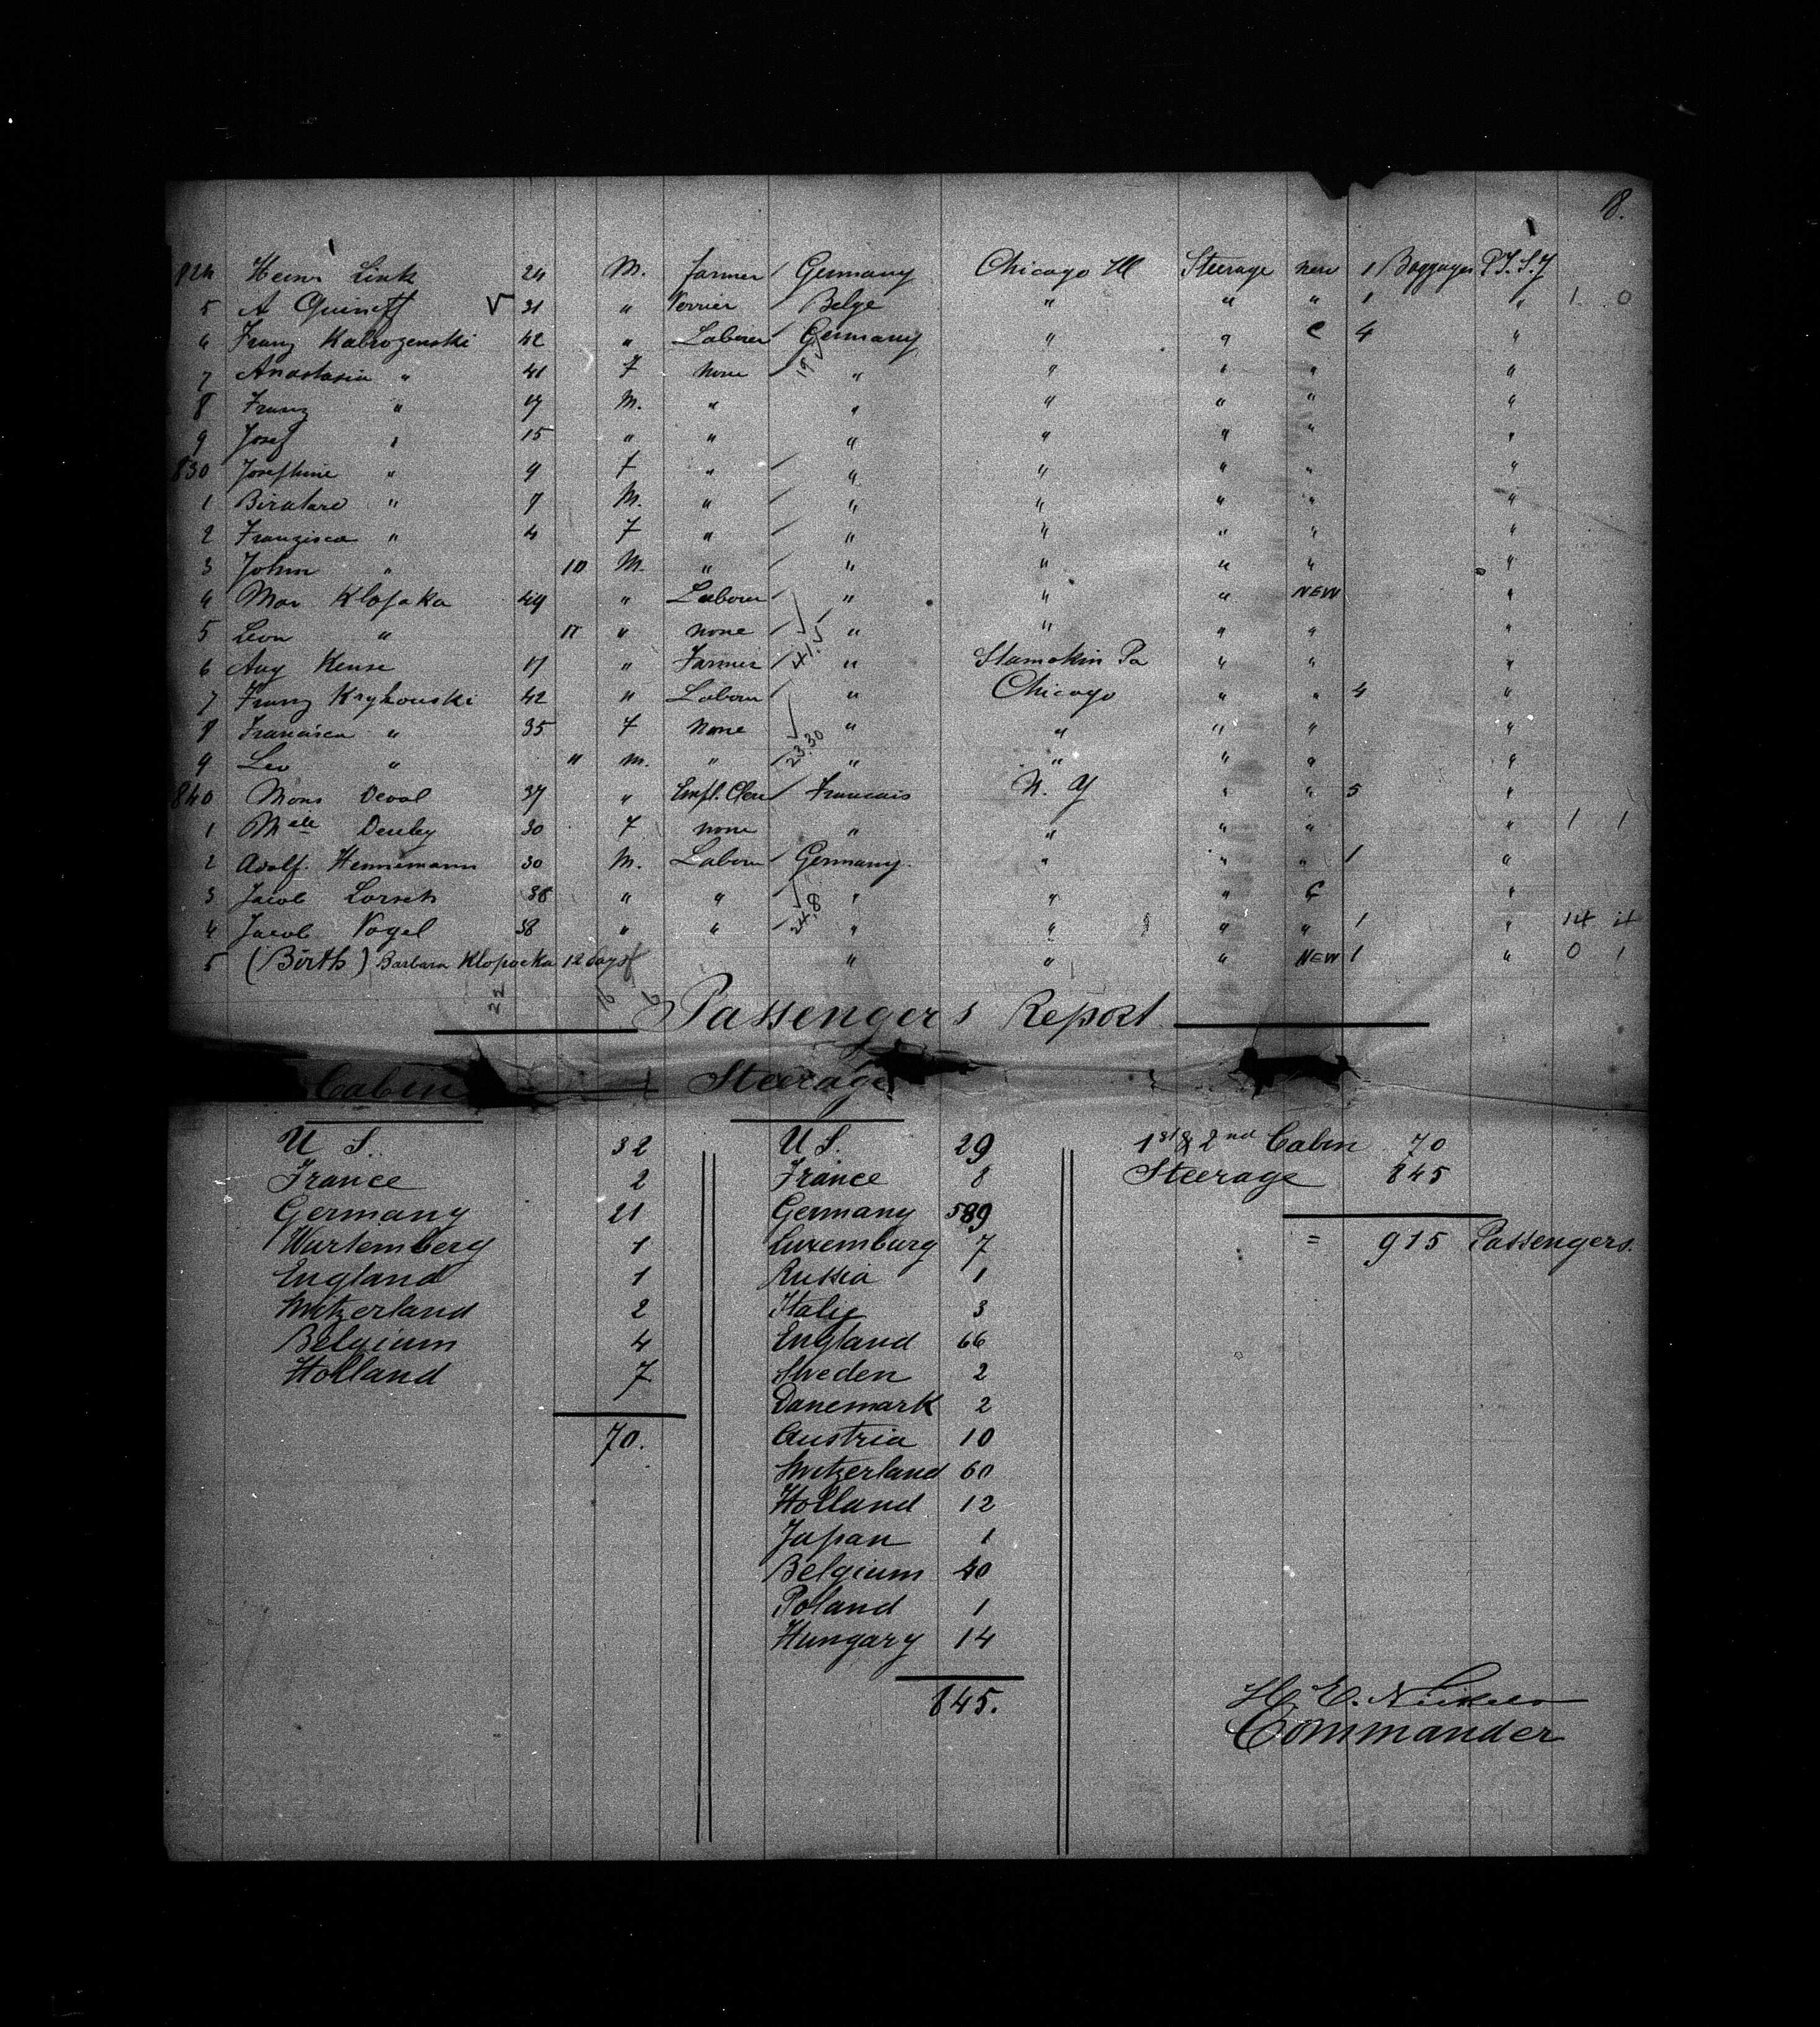 18.
824 Heinr Link 24 M. Farmer Germany Chicago Ill Steerage new 1 Baggages P.T.S.Y
5 A Quineff V 31 " Verrier Belge " " " 1 " 1 0
6 Franz Kabrozenski 42 " Laborer Germany " " C 4 "
7 Anastasia " 41 F none " " " " "
8 Franz " 17 M. " " " " " "
9 Josef " 15 " " " " " " "
830 Josephine " 9 F " " " " " "
1 " 7 M. " " " " " "
2 Franzisca " 4 F " " " " " "
3 Johm " 10 M. " " " " " "
4 Klopaka 49 " Labour " " " NEW "
5 Leon " 11 " none " " " " "
6 Aug Kense 17 " Farmer " Stamokin Pa " " "
7 Franz Krykouski 42 " Labour " Chicago " " 4 "
8 Francisca " 35 F none " " " " "
9 Leo " 11 m. " " " " " "
840 Mons Deval 37 " Empl. Francais N. Y " " 5 "
1 Melle 30 F none " " " " " 1 1
2 Adolf. Hennemann 30 M. Labour Germany " " " 1 "
3 Jacob Lorsch 38 " " " " " C "
4 Jacob Vogel 38 " " " " " " 1 " 14 4
5 (Birth) Barbara Klopocka 12 days f " " " NEW 1 " 0 1
Passengers Report
Cabin Steerage
U S. 32 U S. 29 1st & 2nd Cabin 70
France 2 France 8 Steerage 845
Germany 21 Germany 589
Wurtemberg 1 Luxemburg 7 = 915 Passengers.
England 1 Russia 1
Switzerland 2 Italy 3
Belgium 4 England 66
Holland 7 Sweden 2
Danemark 2
70. Austria 10
Switzerland 60
Holland 12
Japan 1
Belgium 40
Poland 1
Hungary 14
845.
H. E. Nickels
Commander